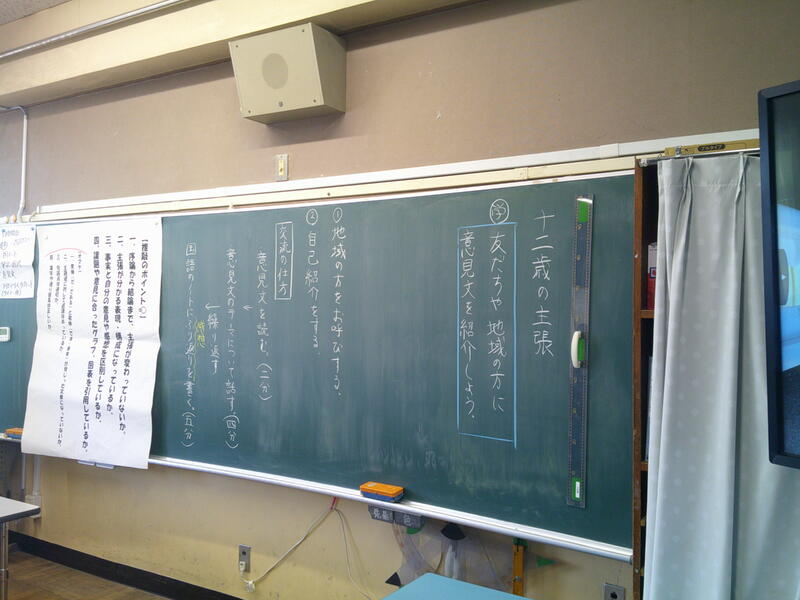 十二歳の主張
学 友だちや地域の方に
意見文を紹介しよう。
① 地域の方をお呼びする。
② 自己紹介をする。
交流の仕方
意見文を読む。(二分)
↓
意見文のテーマについて話す(四分)
↓ 繰り返す
感想
国語のノートにふり返りを書く。(五分)
【推敲のポイント】
一、序論から結論まで、主張が変わっていないか。
二、主張が分かる表現・構成になっているか。
三、事実と自分の意見や感想を区別しているか。
四、課題や意見に合ったグラフ、図表を引用しているか。